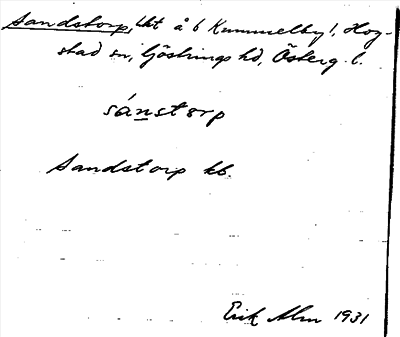 Sandstorp, lht å 6 Kummelby 1, Hog-
stad sn, Göstrings hd, Österg. l.
sánstorp
Sandstorp kb.
Erik Alm 1931